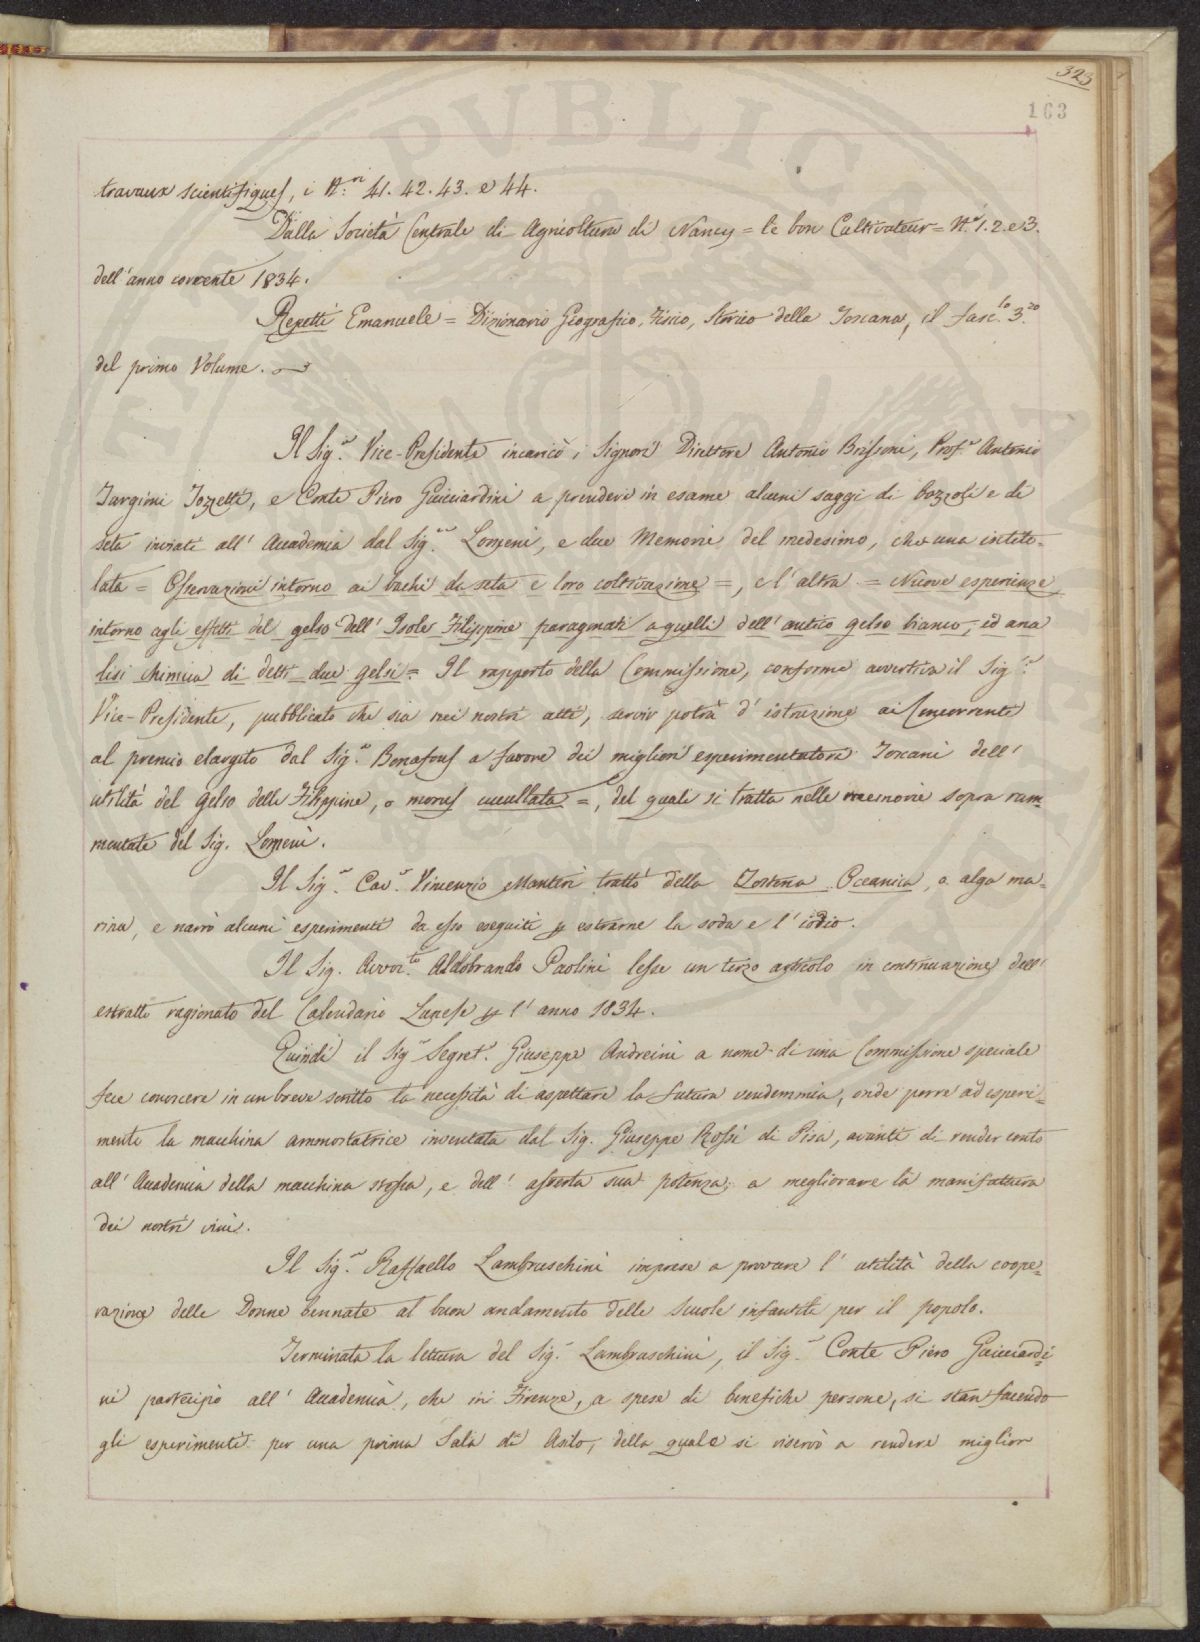 323
163
travaux scientifiques, i N.ri 41. 42. 43. e 44.
Dalla Società Centrale di Agricoltura di Nancy = le bon Cultivateur = N.i 1. 2. e 3.
dell' anno corrente 1834.
Repetti Emanuele = Dizionario Geografico, Fisico, Storico della Toscana, il fasc.lo 3.zo
del primo Volume.
Il Sig.r Vice-Presidente incaricò i Signori Direttore Antonio Brissoni, Prof.r Antonio
Targioni Tozzetti, e Conte Piero Guicciardini a prendere in esame alcuni saggi di bozzoli e di
seta inviati all' Accademia dal Sig.r Lomeni, e due Memorie del medesimo, che una intito-
lata = Osservazioni intorno ai bachi da seta e loro coltivazione =, e l' altra = Nuove esperienze
intorno agli effetti del gelso dell' Isole Filippine paragonati a quelli dell' antico gelso bianco, ed ana
lisi chimica di detti due gelsi = Il rapporto della Commissione, conforme avvertiva il Sig.r
Vice-Presidente, pubblicato che sia nei nostri atti, servir potrà d' istruzione ai Concorrenti
al premio elargito dal Sig.r Bonafous a favore dei migliori esperimentatori Toscani dell'
utilità del gelso delle Filippine, o morus cucullata =, del quale si tratta nelle memorie sopra ram-
mentate del Sig. Lomeni.
Il Sig.r Cav.r Vincenzio Manteri trattò della Zostera Oceanica, o alga ma-
rina, e narrò alcuni esperimenti da esso eseguiti p estrarne la soda e l' iodio.
Il Sig. Avvoc.to Aldobrando Paolini lesse un terzo articolo in continuazione dell'
estratto ragionato del Calendario Lunese p l' anno 1834.
Quindi il Sig.r Segret.o Giuseppe Andreini a nome di una Commissione speciale
fece conoscere in un breve scritto la necessità di aspettare la futura vendemmia, onde porre ad esperi-
mento la macchina ammostatrice inventata dal Sig. Giuseppe Rossi di Pisa, avanti di render conto
all' Accademia della macchina stessa, e dell' asserta sua potenza a megliorare la manifattura
dei nostri vini.
Il Sig.r Raffaello Lambruschini imprese a provare l' utilità della coope-
razione delle Donne bennate al buon andamento delle Scuole infantili per il popolo.
Terminata la lettura del Sig.r Lambruschini, il Sig.r Conte Piero Guicciardi-
ni partecipò all' Accademia, che in Firenze, a spese di benefiche persone, si stan facendo
gli esperimenti per una prima Sala di Asilo, della quale si riservò a rendere miglior